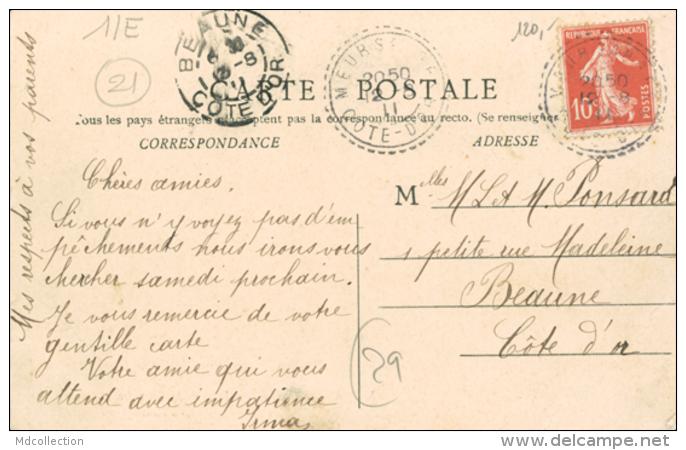 11/E
120,-
21
BEAUNE
CÔTE D'OR
MEURS
20 50
11
CÔTE-D'OR
REPUBLIQUE FRANÇAISE
10
POSTES
20 50
CARTE POSTALE
Tous les pays étrangers n'acceptent pas la correspondance au recto. (Se renseigner
CORRESPONDANCE
ADRESSE
Mes respects à vos parents
Chères amies.
Si vous n'y voyez pas d'em
pêchements nous irons vous
chercher samedi prochain.
Je vous remercie de votre
gentille carte
Votre amie qui vous
attend avec impatience
Irma
Mlles M L & M. Ponsard
1 petite rue Madeleine
Beaune
Côte d'or
29
Mdcollection
www.delcampe.net